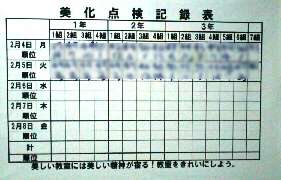 美化点検記録表
1年 2年 3年
1組 2組 3組 4組 1組 2組 3組 4組 1組 2組 3組 4組 5組 6組 7組
2月4日 月
順位
2月5日 火
順位
2月6日 水
順位
2月7日 木
順位
2月8日 金
順位
計
順位
美しい教室には美しい精神が宿る!教室をきれいにしよう。